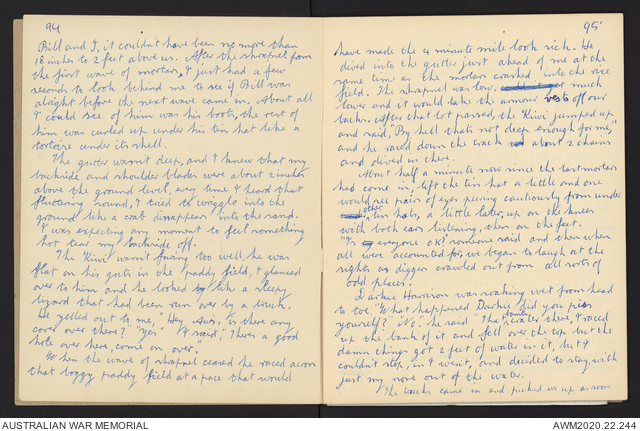 94
Bill and I, it couldn't have been no more than
18 inches to 2 feet above us. After the shrapnel from
the first wave of mortars, I just had a few
seconds to look behind me to see if Bill was
alright before the next wave came in. About all
I could see of him was his boots, the rest of
him was curled up under his tin hat like a
tortoise under its shell.
The gutter wasn't deep, and I knew that my
backside and shoulder blades were about 2 inches
above the ground level, every time I heard that
fluttering sound, I tried to wriggle into the
ground like a crab disappears into the sand.
I was expecting any moment to feel something
hot tear my backside off.
The Kiwi wasn't faring too well, he was
flat on his guts in the paddy field, I glanced
over to him and he looked like a sleepy
lizard that had been run over by a truck.
He yelled out to me, "Hey Aus, is there any
cover over there?" "Yes" I said, "There's a good
hole over here, come on over".
When the wave of shrapnel ceased he raced across
that boggy paddy field at a pace that would
95
have made the 4 minute mile look sick. He
dived into the gutter just ahead of me at the
same time as the mortars crashed into the rice
field. The shrapnel was low, much
lower and it would take the armour vests off our
backs. After that lot passed, the "Kiwi" jumped up
and said, "By hell that's not deep enough for me,"
and he raced down the track about 2 chains
and dived in there.
About half a minute now since the last mortars
had come in, I left the tin hat a little and one
would see pairs of eyes peering cautiously from under
other tin hats, a little later, up on the knees
with both ears listening, then on the feet.
"Is everyone OK?" someone said and then when
all were accounted for, we began to laugh at the
sights as diggers crawled out from all sorts of
odd places.
Darkie Harrison was soaking wet from head
to toe. "What happened Darkie did you piss
yourself?" "No". he said "That bomb crater there, I raced
up the bank of it and fell over the top but the
damn things got 2 feet of water in it, but I
couldn't stop, in I went, and decided to stay, with
just my nose out of the water.
The trucks came in and picked us up as soon
AUSTRALIAN WAR MEMORIAL
AWM2020.22.244